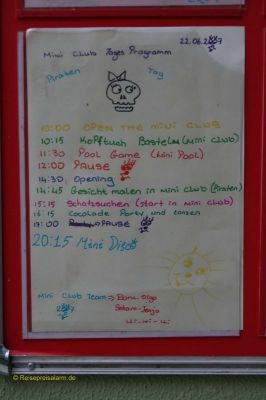 22.06.2007
Mini Club Tages Programm
Piraten Tag
10:00 OPEN THE MINI CLUB
10:15 Kopftuch Basteln (Mini Club)
11:30 Pool Game (Mini Pool)
12:00 PAUSE
14:30 Opening
14:45 Gesicht malen in Mini Club (Piraten)
15:15 Schatzsuchen (Start in Mini Club)
16:15 Cocolade Party und tanzen
17:00 PAUSE
20:15 Mini Disco
Mini Club Team
© Reisepreisalarm.de